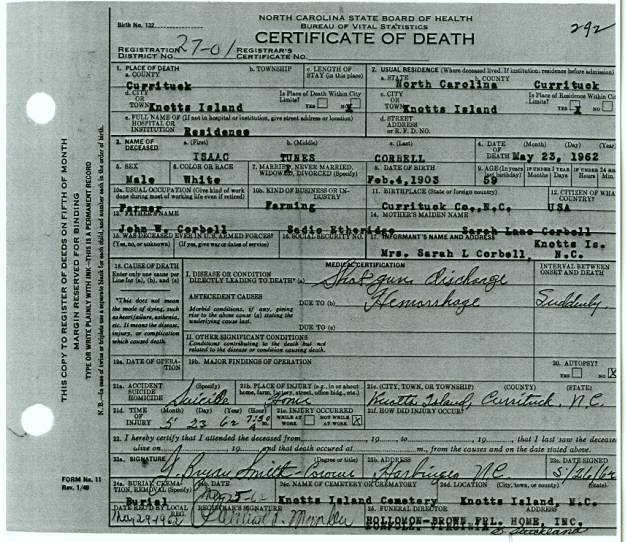 NORTH CAROLINA STATE BOARD OF HEALTH
BUREAU OF VITAL STATISTICS
CERTIFICATE OF DEATH
Birth No. 132
292
REGISTRATION DISTRICT NO. 27-01 REGISTRAR'S CERTIFICATE NO.
1. PLACE OF DEATH
a. COUNTY
Currituck
b. TOWNSHIP
c. LENGTH OF STAY (in this place)
2. USUAL RESIDENCE (Where deceased lived. If institution, residence before admission)
a. STATE
North Carolina
b. COUNTY
Currituck
d. CITY OR TOWN Knotts Island
Is Place of Death Within City Limits?
YES NO X
c. CITY OR TOWN Knotts Island
Is Place of Residence Within City
YES NO
e. FULL NAME OF (If not in hospital or institution, give street address or location) HOSPITAL OR INSTITUTION
Residence
d. STREET ADDRESS OR R. F. D. NO.
3. NAME OF DECEASED
a. (First)
ISAAC
b. (Middle)
TUNES
c. (Last)
CORBELL
4. DATE OF DEATH (Month) (Day) (Year)
May 23, 1962
5. SEX
Male
6. COLOR OR RACE
White
7. MARRIED, NEVER MARRIED, WIDOWED, DIVORCED (Specify)
8. DATE OF BIRTH
Feb.4,1903
9. AGE (In years last birthday)
10a. USUAL OCCUPATION (Give kind of work done during most of working life, even if retired)
Farmer
10b. KIND OF BUSINESS OR INDUSTRY
Farming
11. BIRTHPLACE (State or foreign country)
Currituck Co.,N.C.
12. CITIZEN OF WHAT COUNTRY?
USA
13. FATHER'S NAME
John W. Corbell
14. MOTHER'S MAIDEN NAME
Sadie Etheridge
Sarah Lane Corbell
15. WAS DECEASED EVER IN U.S. ARMED FORCES?
(Yes, no, or unknown) (If yes, give war or dates of service)
16. SOCIAL SECURITY NO.
17. INFORMANT'S NAME AND ADDRESS
Knotts Is.
Mrs. Sarah L Corbell, N.C.
18. CAUSE OF DEATH
Enter only one cause per line for (a), (b), and (c)
*This does not mean the mode of dying, such as heart failure, asthenia, etc. It means the disease, injury, or complication which caused death.
MEDICAL CERTIFICATION
I. DISEASE OR CONDITION DIRECTLY LEADING TO DEATH* (a) Shot gun discharge
ANTECEDENT CAUSES
Morbid conditions, if any, giving rise to the above cause (a) stating the underlying cause last.
DUE TO (b) Hemorrhage
DUE TO (c)
INTERVAL BETWEEN ONSET AND DEATH
Suddenly
II. OTHER SIGNIFICANT CONDITIONS
Conditions contributing to the death but not related to the disease or condition causing death.
19a. DATE OF OPERATION
19b. MAJOR FINDINGS OF OPERATION
20. AUTOPSY?
YES NO X
21a. ACCIDENT SUICIDE HOMICIDE (Specify)
Suicide
21b. PLACE OF INJURY (e.g., in or about home, farm, factory, street, office bldg., etc.)
Home
21c. (CITY, TOWN, OR TOWNSHIP) (COUNTY) (STATE)
Knotts Island, Currituck, N.C.
21d. TIME OF INJURY (Month) (Day) (Year) (Hour)
5 23 62
21e. INJURY OCCURRED
WHILE AT WORK NOT WHILE AT WORK X
21f. HOW DID INJURY OCCUR?
22. I hereby certify that I attended the deceased from, 19, to, 19, that I last saw the deceased alive on, 19, and that death occurred at m., from the causes and on the date stated above.
23a. SIGNATURE (Degree or title)
Bryan Smith Coroner
23b. ADDRESS
N.C.
23c. DATE SIGNED
5/26/62
24a. BURIAL, CREMATION, REMOVAL (Specify)
Burial
24b. DATE
May 25-62
24c. NAME OF CEMETERY OR CREMATORY
Knotts Island Cemetery
24d. LOCATION (City, town, or county) (State)
Knotts Island, N.C.
DATE REC'D BY LOCAL REG.
May 29 1962
REGISTRAR'S SIGNATURE
25. FUNERAL DIRECTOR ADDRESS
HOLLOMON-BROWN FNL. HOME, INC.
NORFOLK, VIRGINIA
FORM No. 11
Rev. 1/49
THIS COPY TO REGISTER OF DEEDS ON FIFTH OF MONTH
MARGIN RESERVED FOR BINDING
TYPE OR WRITE PLAINLY WITH INK—THIS IS A PERMANENT RECORD